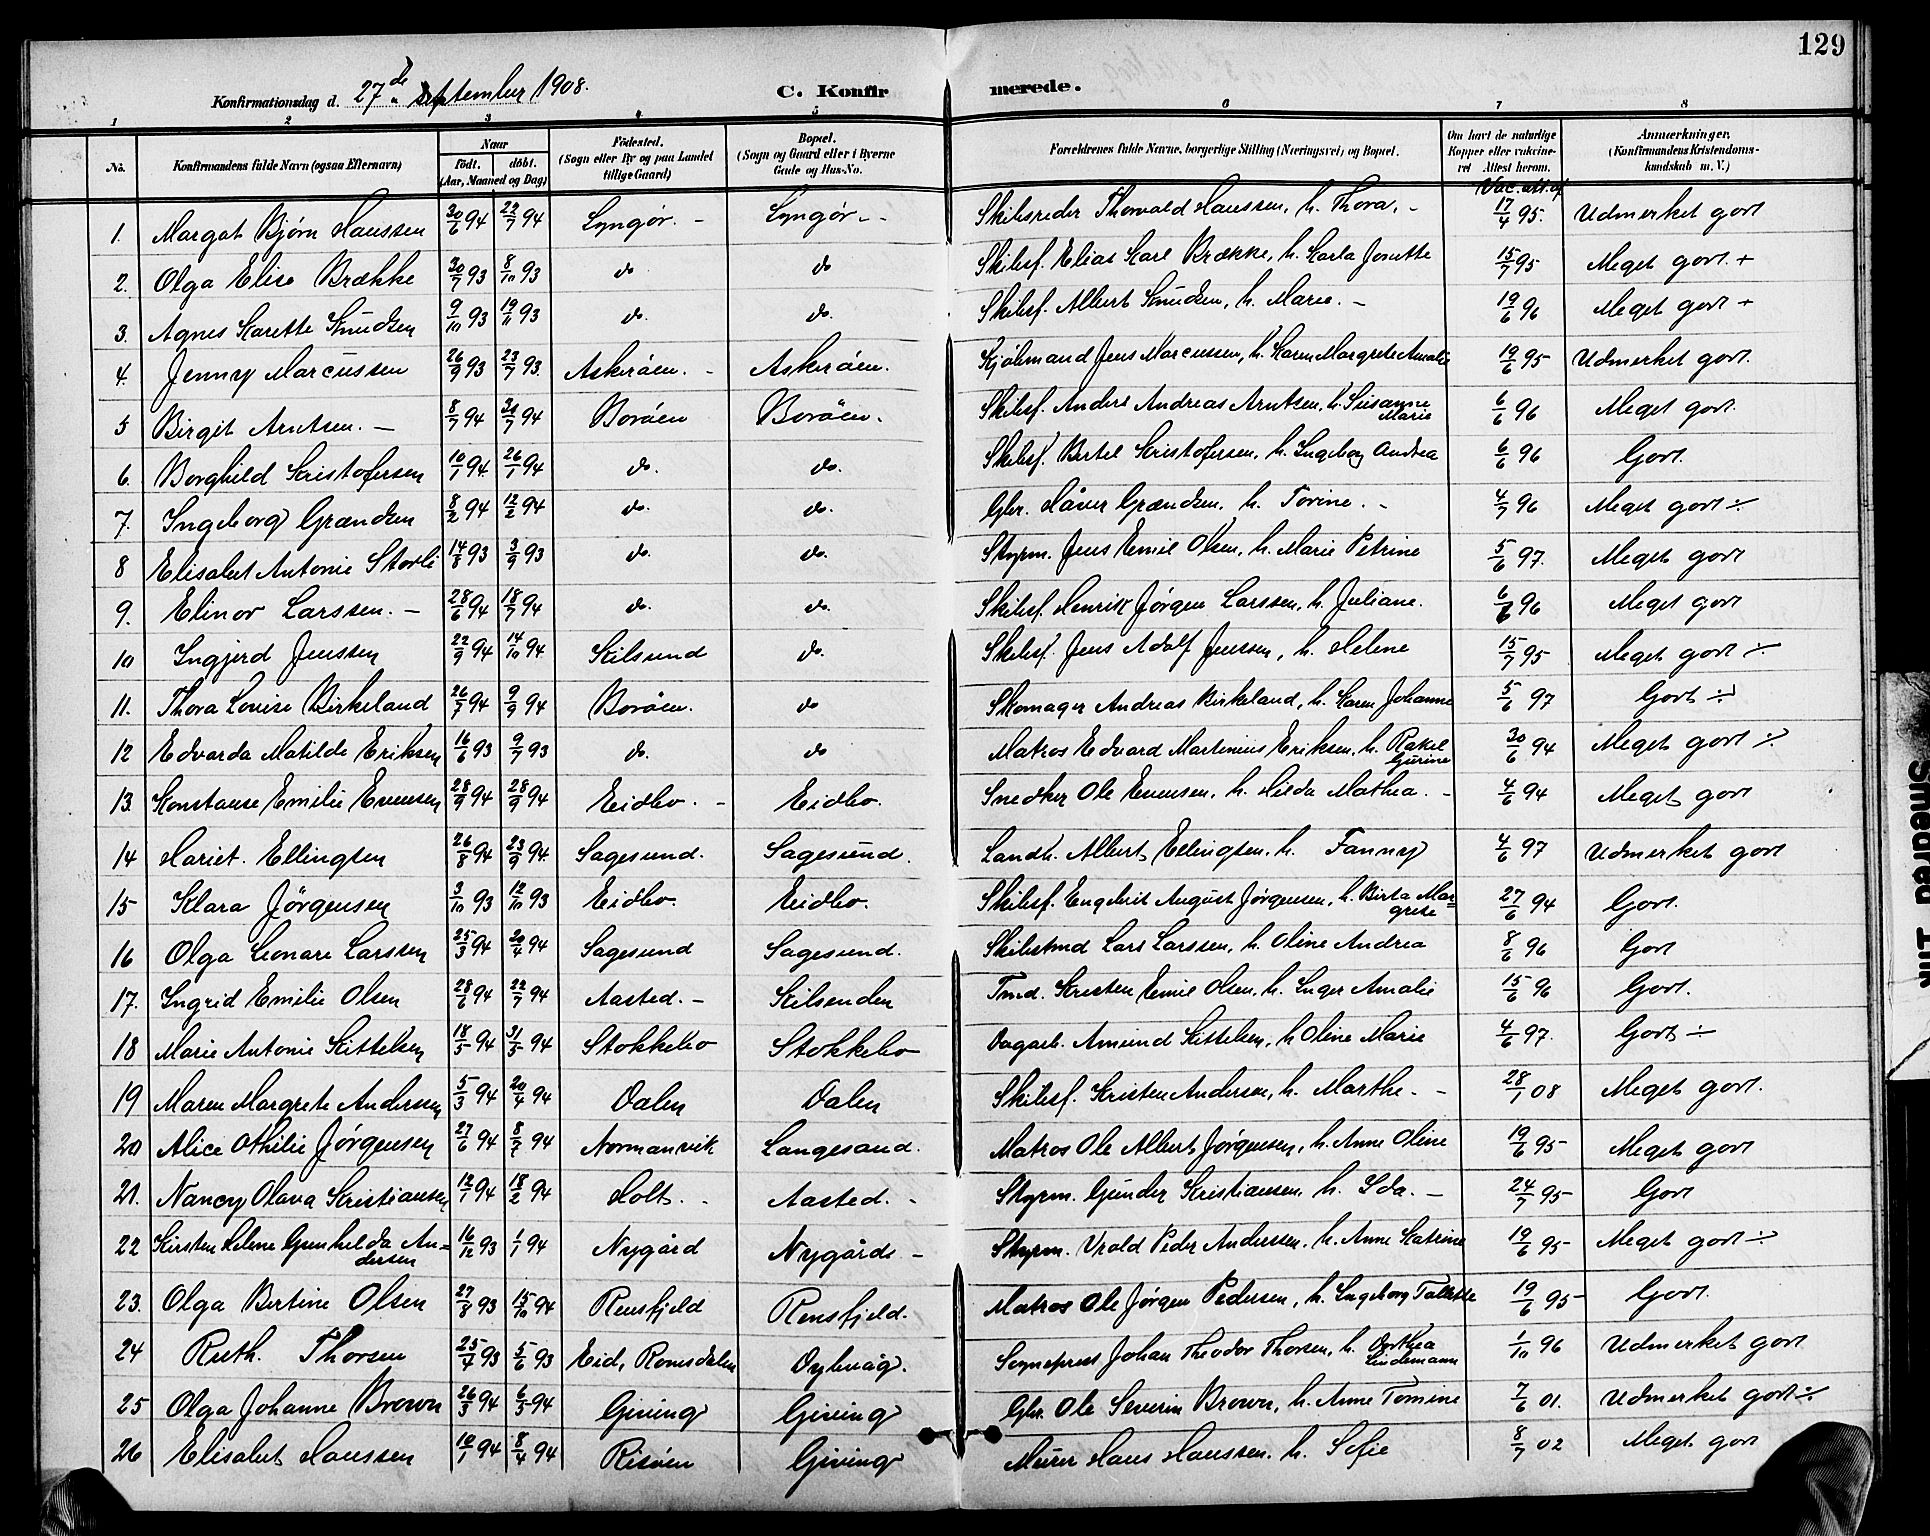 129
Konfirmationsdag d. 27de September 1908.
C. Konfirmerede.
1 2 3 4 5 6 7 8
No. Konfirmandens fulde Navn (ogsaa Efternavn) Naar født. døbt. (Aar, Maaned og Dag) Födested. (Sogn eller By og paa Landet tillige Gaard) Bopæl. (Sogn og Gaard eller i Byerne Gade og Hus-No. Forældrenes fulde Navne, borgerlige Stilling (Næringsvei) og Bopæl. Om havt de naturlige Kopper eller vakcineret Attest herom. Anmærkninger. (Konfirmandens Kristendomskundskab m. V.)
Vac. att. af
1. Margot Bjørn Hanssen 30/6 94 22/7 94 Lyngør. - Lyngør. - Skibsreder Thorvald Hanssen, h. Thora. - 17/4 95. Udmerket godt
2. Olga Elise Brække 30/7 93 8/10 93 do do Skibsf. Elias Karl Brække, h. Karla Josette 15/7 95 Meget godt. +
3. Agnes Karette Knudsen 9/10 93 19/11 93 do. do. Skibsf. Albert Knudsen, h. Marie. - 19/6 96 Meget godt +
4. Jenny Marcussen 26/9 93 23/7 93. Askerøen. - Askerøen. Kjøbmand Jens Marcussen, h. Karen Margrete Amalie 19/6 95 Udmerket godt.
5 Birgit Arntsen. - 8/7 94 31/7 94 Borøen Borøen. Skibsf. Anders Andreas Arntsen, h. Susanne Marie 6/6 96 Meget godt.
6. Borghild Kristofersen 10/7 94 26/7 94 do. do. Skibsf. Bertel Kristofersen, h. Ingeborg Andrea 6/6 96 Godt.
7. Ingeborg Grændsen 8/2 94 12/2 94 do. do. Gbr. Håver Grændsen, h. Torine. - 4/7 96 Meget godt ÷
8 Elisabet Antonie Storli 14/8 93 3/9 93 do. do. Styrm. Jens Emil Olsen, h. Marie Petrine 5/6 97. Meget godt
9. Elinor Larssen. - 28/6 94 18/7 94 do. do. Skibsf. Henrik Jørgen Larssen, h. Juliane. 6/6 96 Meget godt
10 Ingjerd Jenssen 22/9 94 14/10 94 Kilsund do. Skibsf. Jens Adolf Jenssen, h. Helene 15/7 95 Meget godt ÷
11. Thora Lovise Birkeland 26/7 94 9/9 94 Borøen. do Skomager Andreas Birkeland, h. Karen Johanne 5/6 97 Godt ÷
12 Edvarda Matilde Eriksen 16/6 93 9/7 93 do. do Matros Edvard Martinius Eriksen, h. Rakel Gurine 30/6 94 Meget godt ÷
13. Konstanse Emilie Evensen 28/9 94 28/9 94 Eidbo. - Eidbo. Snedker Ole Evensen, h. Hilda Mathea. - 4/6 94 Meget godt
14 Hariet. Ellingsen 26/8 94 23/9 94 Sagesund. Sagesund. Landh. Albert Ellingsen, h. Fanny 4/6 97 Udmerket godt
15 Klara Jörgensen 3/10 93 12/10 93 Eidbo. Eidbo. Skibsf. Engebrit August Jørgensen, h. Birta Margrete 27/6 94 Godt.
16 Olga Leonare Larssen 25/3 94 20/4 94 Sagesund Sagesund. Skibstmd Lars Larssen, h. Oline Andrea 8/6 96 Godt
17. Ingrid Emilie Olsen 28/6 94 22/7 94 Aasted. - Kilsenden Tmd. Kristen Emil Olsen, h. Inger Amalie 15/6 96 Godt.
18 Marie Antonie Kittelsen 18/5 94 31/5 94 Stokkebo Stokkebo Dagarb. Amund Kittelsen, h Oline Marie 4/6 97. Godt ÷
19 Maren Margrete Andersen 5/3 94 20/4 94 Dalen Dalen Skibsf. Kristen Andersen, h. Marthe. - 28/1 08 Meget godt.
20 Alice Othilie Jørgensen 27/6 94 8/7 94 Normanvik Langesand. Matros Ole Albert Jørgensen, h. Anne Oline 19/6 95 Meget godt
21. Nancy Olava Kristiansen 12/1 94 18/2 94 Holt. - Aasted. - Styrm. Gunder Kristiansen, h. Ida. - 24/7 95 Godt
22 Kirsten Helene Gunhilda Andersen 16/12 93 1/1 94 Nygård Nygårds - Styrm. Vrold Peder Anderssen, h. Anne Katrine 19/6 95 Meget godt ÷
23. Olga Bertine Olsen 27/8 93 15/10 94 Rensfjeld Rensfjeld. Matros Ole Jørgen Pedersen, h. Ingeborg Tallette 19/6 95 Godt.
24 Ruth. Thorsen 25/4 93 5/6 93 Eid, Romsdalen Dybvåg. Sogneprest Johan Theodor Thorsen, h. Dorthea Lindemann 1/10 96 Udmerket godt
25 Olga Johanne Brown 26/3 94 6/5 94 Giving Giving Gbr. Ole Severin Brown, h. Anne Tomine 7/6 01. Udmerket godt ÷
26 Elisabet Hanssen 10/1 94 8/4 94 Risøen Giving Murer Hans Hanssen, h. Sofie 8/7 02 Meget godt